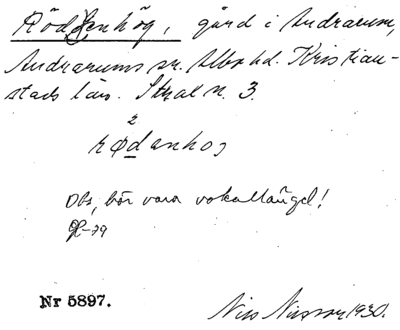 Röddenhög, gård i Andrarum,
Andrarums sn. Albo hd. Kristian-
stads län. Skal n. 3.
rødanhoj
Obs, bör vara vokallängd!
-79
Nr 5897.
Nils Nilsson 1930.